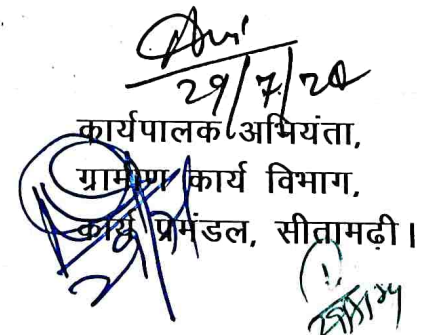 29/7/20
कार्यपालक अभियंता,
ग्रामीण कार्य विभाग,
कार्य प्रमंडल, सीतामढ़ी।